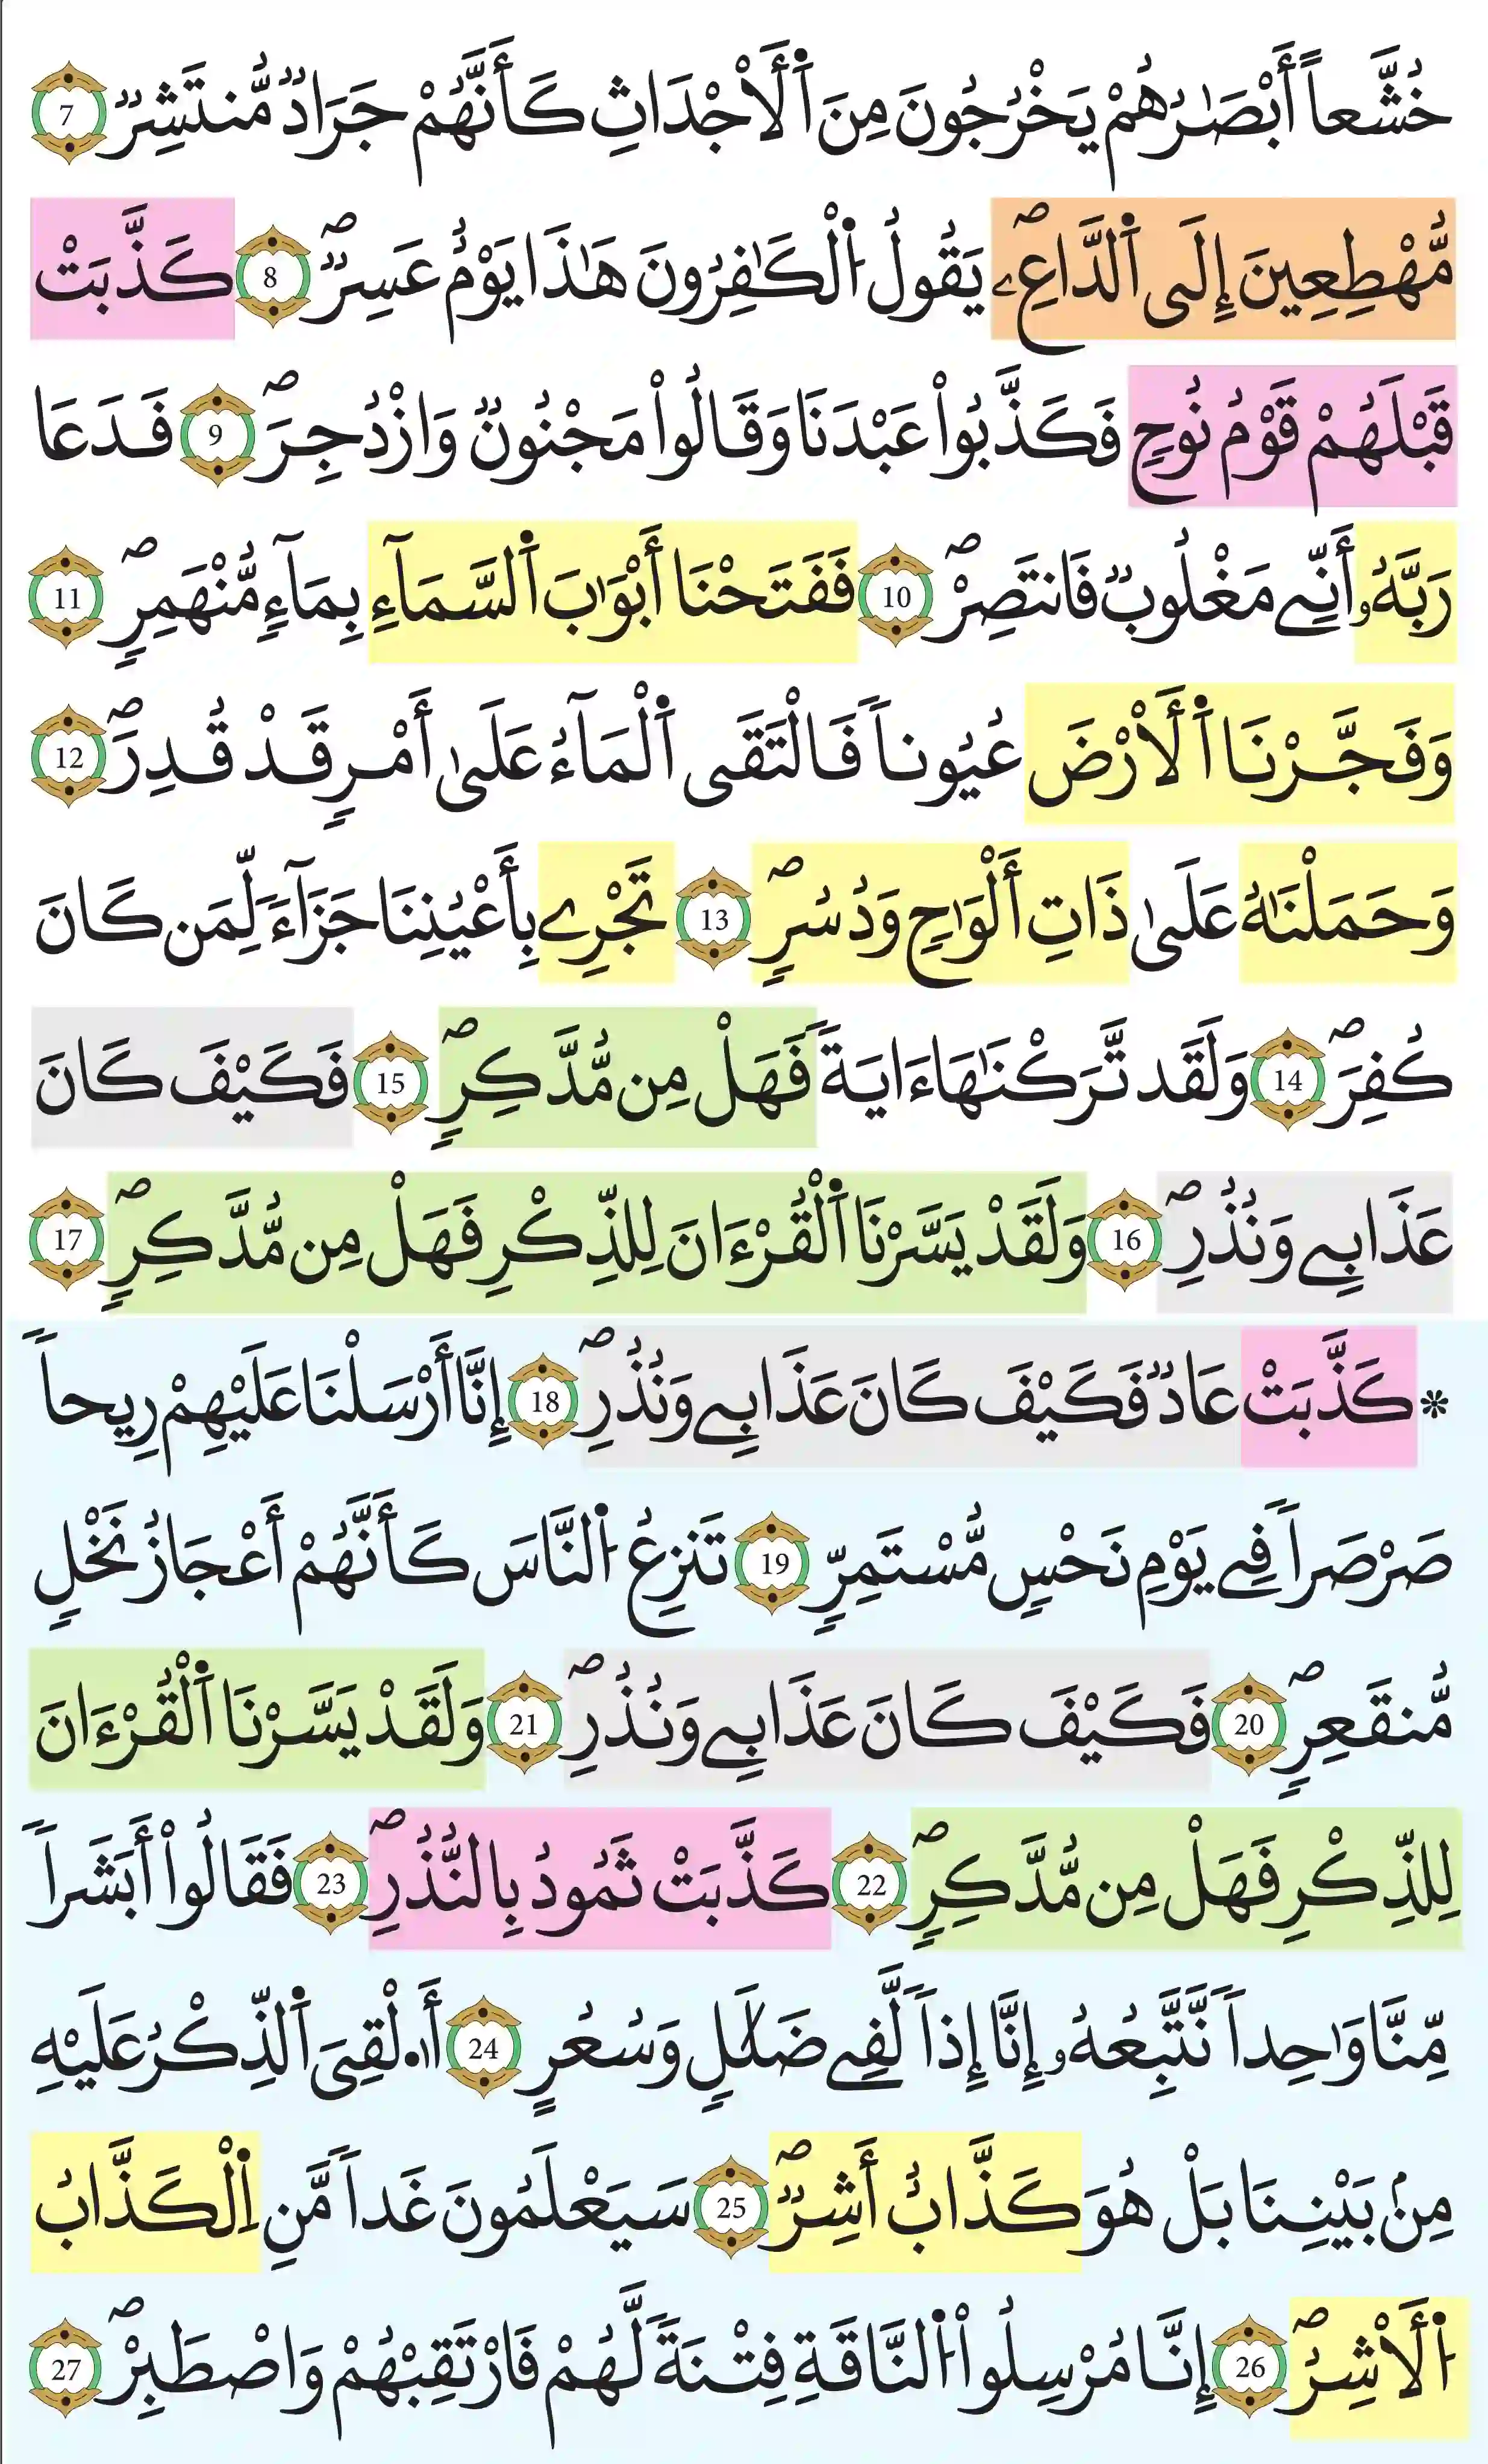 خُشَّعاً أَبْصَٰرُهُمْ يَخْرُجُونَ مِنَ اَ۬لَأَجْدَاثِ كَأَنَّهُمْ جَرَادٞ مُّنتَشِرٞ 7
مُّهْطِعِينَ إِلَى اَ۬لدَّاعِۦۖ يَقُولُ اُ۬لْكَٰفِرُونَ هَٰذَا يَوْمٌ عَسِرٞۖ 8 كَذَّبَتْ
قَبْلَهُمْ قَوْمُ نُوحٖ فَكَذَّبُواْ عَبْدَنَا وَقَالُواْ مَجْنُونٞ وَازْدُجِرَۖ 9 فَدَعَا
رَبَّهُۥٓ أَنِّے مَغْلُوبٞ فَانتَصِرْۖ 10 فَفَتَحْنَا أَبْوَٰبَ اَ۬لسَّمَآءِ بِمَآءٖ مُّنْهَمِرٖۖ 11
وَفَجَّرْنَا اَ۬لَأَرْضَ عُيُوناٗ فَالْتَقَى اَ۬لْمَآءُ عَلَىٰ أَمْرٖ قَدْ قُدِرَۖ 12
وَحَمَلْنَٰهُ عَلَىٰ ذَاتِ أَلْوَٰحٖ وَدُسُرٖۖ 13 تَجْرِے بِأَعْيُنِنَا جَزَآءٗ لِّمَن كَانَ
كُفِرَۖ 14 وَلَقَد تَّرَكْنَٰهَا ءَايَةٗ فَهَلْ مِن مُّدَّكِرٖۖ 15 فَكَيْفَ كَانَ
عَذَابِے وَنُذُرِۖ 16 وَلَقَدْ يَسَّرْنَا اَ۬لْقُرْءَانَ لِلذِّكْرِ فَهَلْ مِن مُّدَّكِرٖۖ 17
* كَذَّبَتْ عَادٞ فَكَيْفَ كَانَ عَذَابِے وَنُذُرِۖ 18 إِنَّا أَرْسَلْنَا عَلَيْهِمْ رِيحاٗ
صَرْصَراٗ فِے يَوْمِ نَحْسٖ مُّسْتَمِرّٖ 19 تَنزِعُ اُ۬لنَّاسَ كَأَنَّهُمْ أَعْجَازُ نَخْلٖ
مُّنقَعِرٖۖ 20 فَكَيْفَ كَانَ عَذَابِے وَنُذُرِۖ 21 وَلَقَدْ يَسَّرْنَا اَ۬لْقُرْءَانَ
لِلذِّكْرِ فَهَلْ مِن مُّدَّكِرٖۖ 22 كَذَّبَتْ ثَمُودُ بِالنُّذُرِۖ 23 فَقَالُواْ أَبَشَراٗ
مِّنَّا وَٰحِداٗ نَّتَّبِعُهُۥٓ إِنَّا إِذاٗ لَّفِے ضَلَٰلٖ وَسُعُرٍ 24 أَا۟لْقِيَ اَ۬لذِّكْرُ عَلَيْهِ
مِنۢ بَيْنِنَا بَلْ هُوَ كَذَّابٌ أَشِرٞۖ 25 سَيَعْلَمُونَ غَداٗ مَّنِ اِ۬لْكَذَّابُ
اُ۬لَأَشِرُۖ 26 إِنَّا مُرْسِلُواْ اُ۬لنَّاقَةِ فِتْنَةٗ لَّهُمْ فَارْتَقِبْهُمْ وَاصْطَبِرْۖ 27